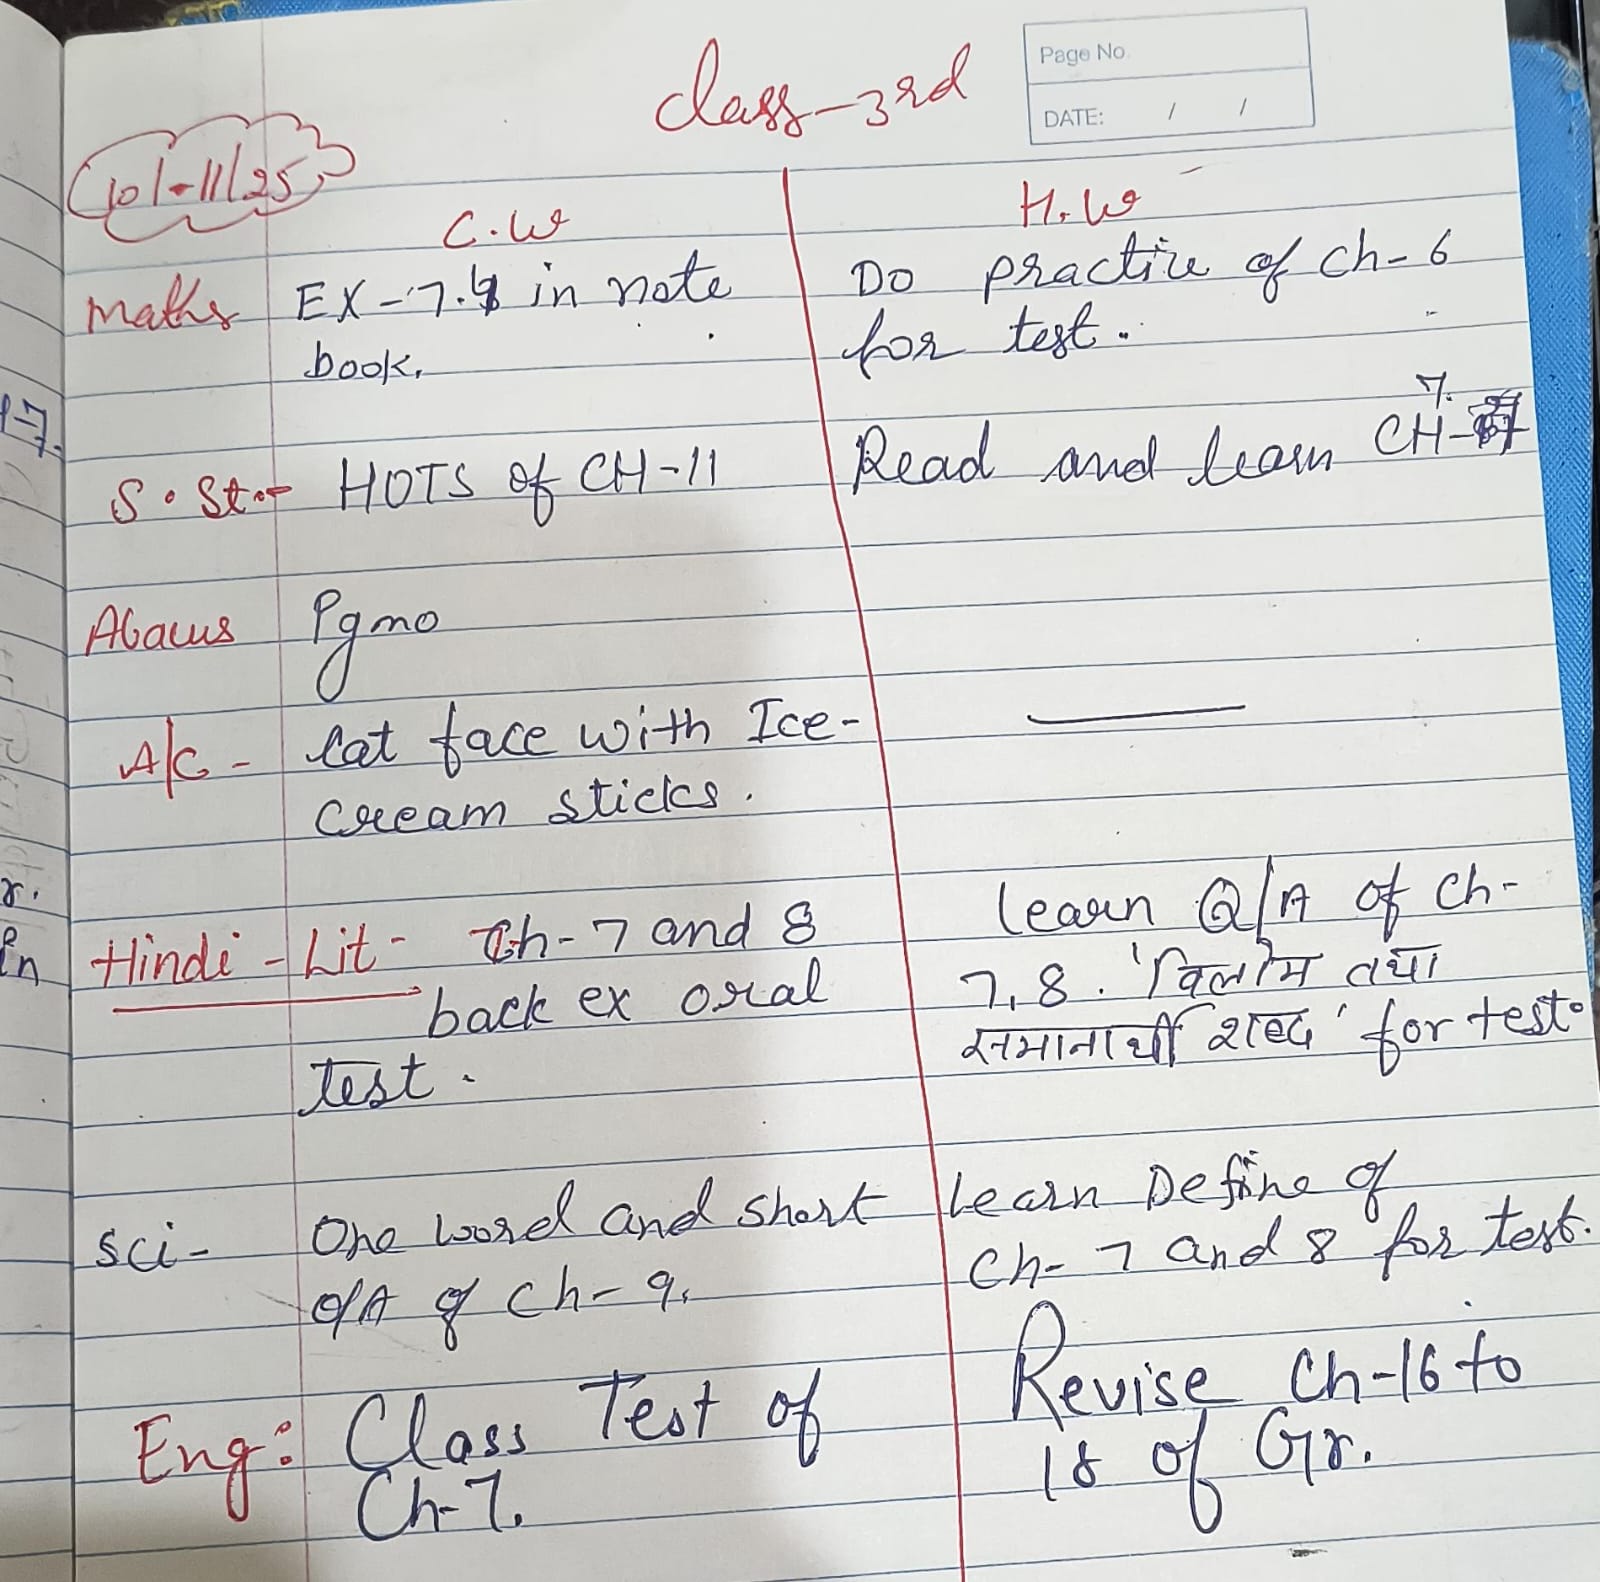 Class-3rd
Page No.
DATE: / /
10/-11/25
C.W
H.W
Maths EX-7.4 in note
book.
Do practice of Ch-6
for test.
S.St.- HOTS of CH-11
Read and learn CH-7
Abacus Pgno
A/C - Cat face with Ice-
cream sticks.
Hindi-Lit- Ch-7 and 8
back ex oral
test.
learn Q/A of Ch-
7,8. 'विलोम तथा
समानार्थी शब्द' for test.
Sci- One word and short
Q/A of Ch-9.
learn Define of
Ch-7 and 8 for test.
Eng: Class Test of
Ch-7.
Revise Ch-16 to
18 of Gr.